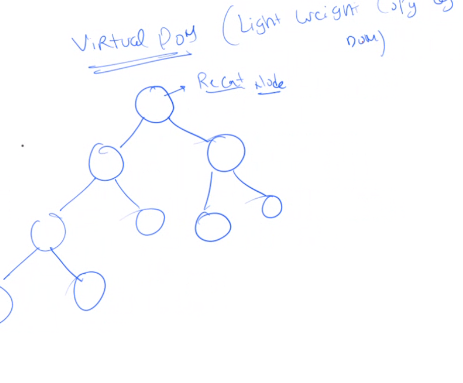 Virtual DOM (Light weight Copy of
DOM)
React Node